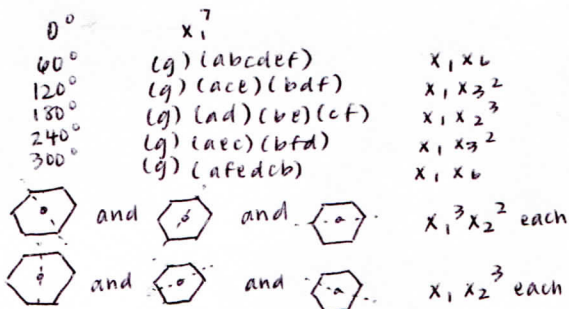 0° x₁⁷
60° (g)(abcdef) x₁x₆
120° (g)(ace)(bdf) x₁x₃²
180° (g)(ad)(be)(cf) x₁x₂³
240° (g)(aec)(bfd) x₁x₃²
300° (g)(afedcb) x₁x₆
and and x₁³x₂² each
and and x₁x₂³ each